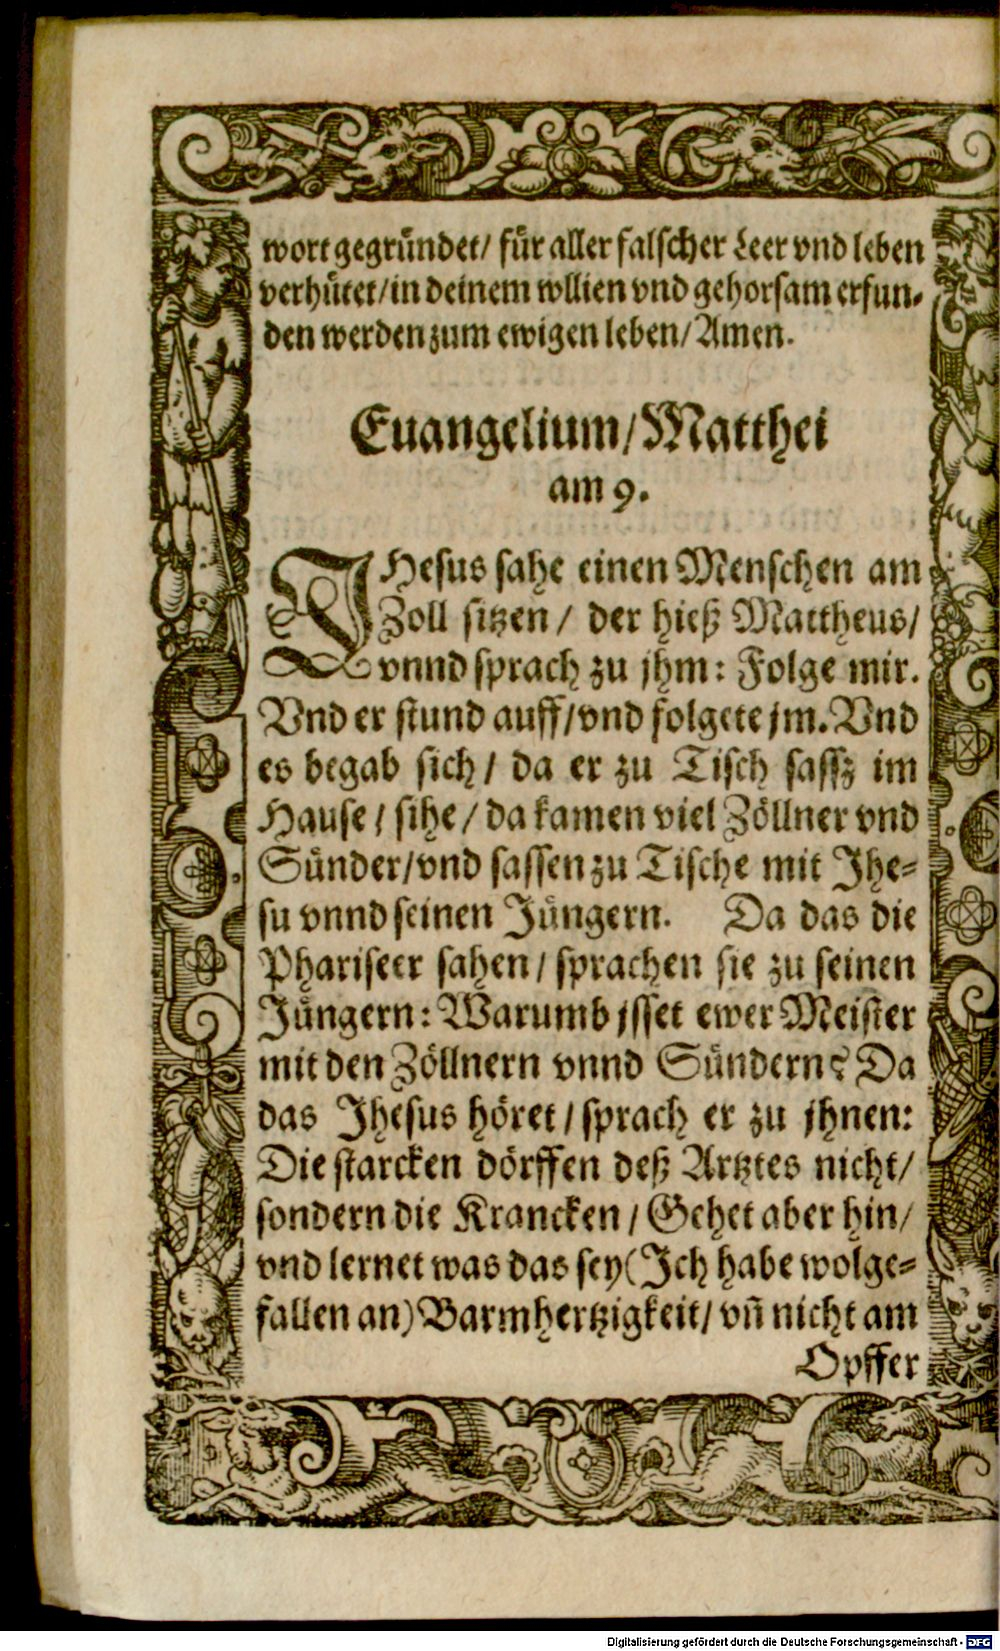 wort gegründet/ für aller falscher Leer vnd leben
verhütet/ in deinem wllien vnd gehorsam erfun-
den werden zum ewigen leben/ Amen.
Euangelium/ Matthei
am 9.
JHesus sahe einen Menschen am
Zoll sitzen/ der hieß Mattheus/
vnnd sprach zu jhm: Folge mir.
Vnd er stund auff/ vnd folgete jm. Vnd
es begab sich/ da er zu Tisch sassz im
Hause/ sihe/ da kamen viel Zöllner vnd
Sünder/ vnd sassen zu Tische mit Jhe-
su vnnd seinen Jüngern. Da das die
Phariseer sahen/ sprachen sie zu seinen
Jüngern: Warumb jsset ewer Meister
mit den Zöllnern vnnd Sündern? Da
das Jhesus höret/ sprach er zu jhnen:
Die starcken dörffen deß Artztes nicht/
sondern die Krancken/ Gehet aber hin/
vnd lernet was das sey (Jch habe wolge-
fallen an) Barmhertzigkeit/ vñ nicht am
Opffer
Digitalisierung gefördert durch die Deutsche Forschungsgemeinschaft - DFG